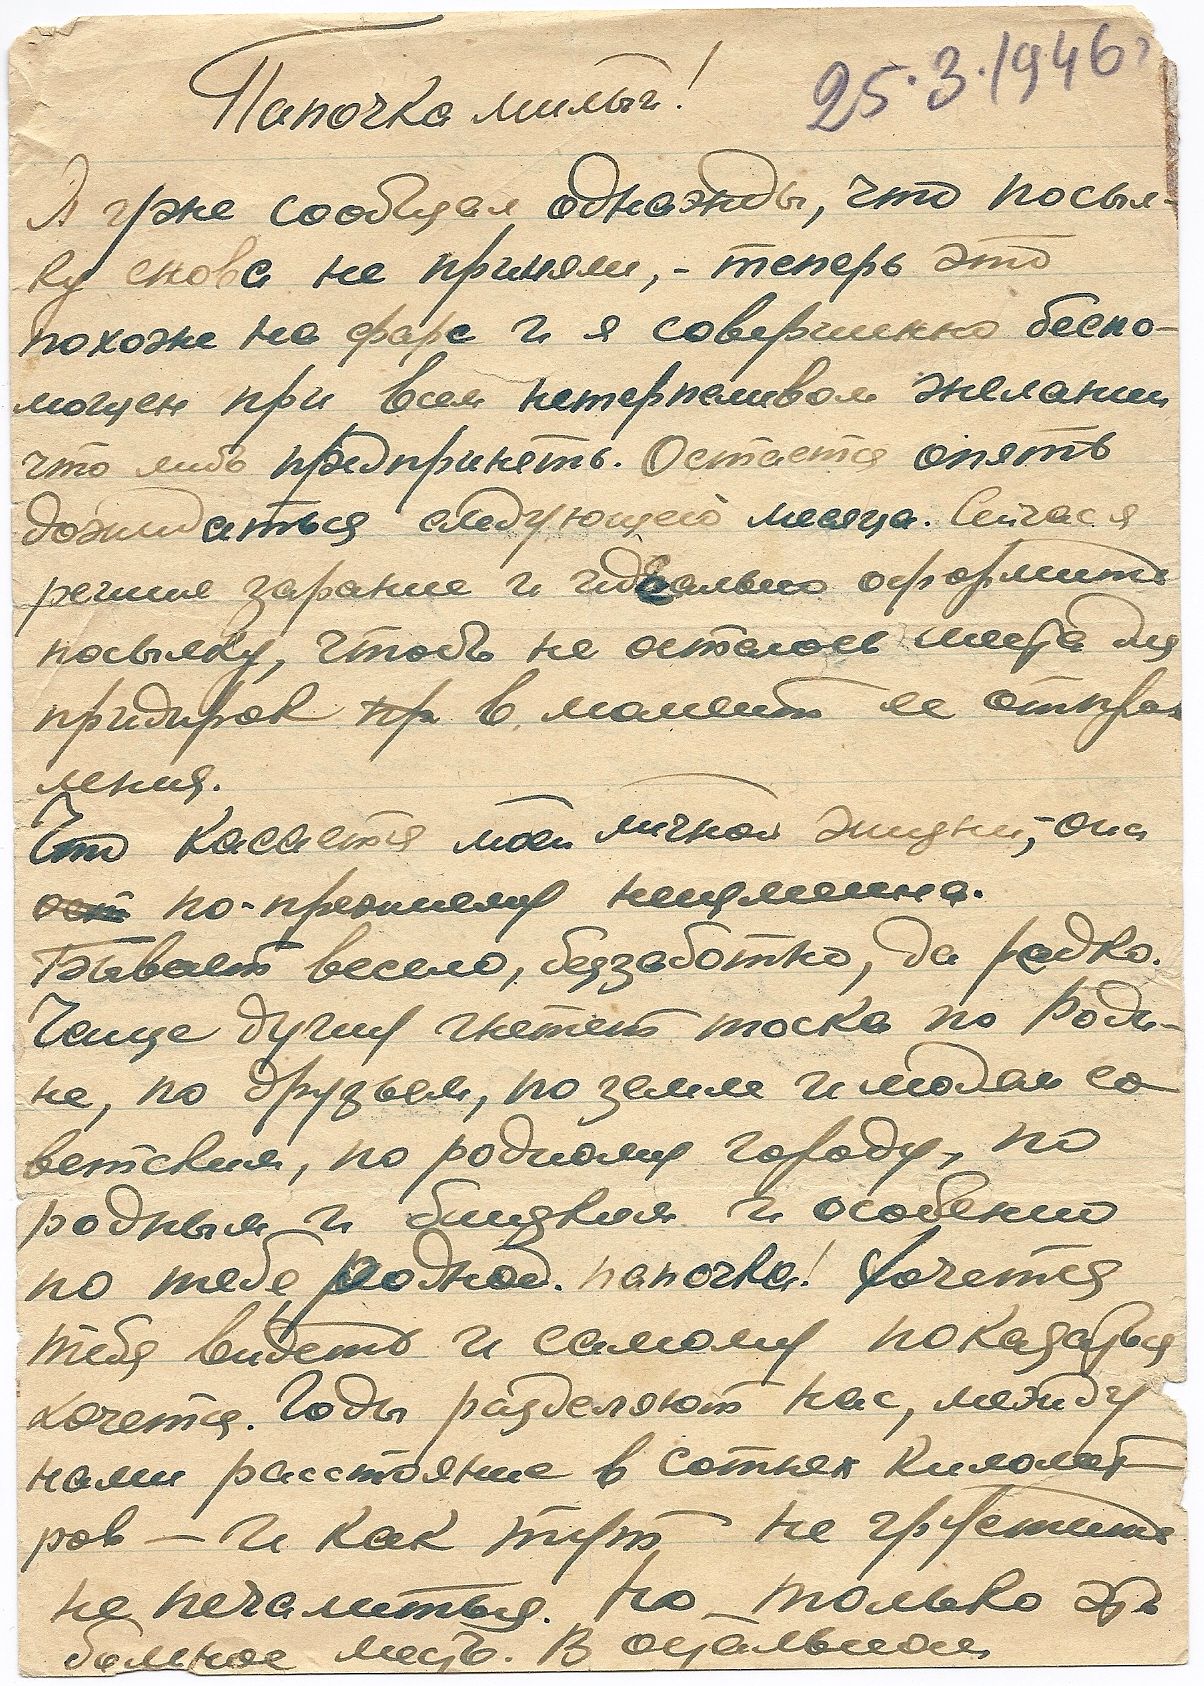 25.3.1946
Папочка милый!
Я уже сообщал однажды, что посыл-
ку снова не приняли, - теперь это
похоже на фарс и я совершенно беспо-
мощен при всем нетерпеливом желании
что либо предпринять. Остается опять
дожидаться следующего месяца. Сейчас я
решил заранее и идеально оформить
посылку, чтобъ не осталось места для
придирок пр в момент ее отправ
ления.
Что касается моей личной жизни, - она
ост по-прежнему неизменна.
Бывает весело, беззаботно, да редко.
Чаще душу гнетет тоска по Роди-
не, по друзьям, по земле и людям со-
ветским, по родному городу, по
родным и близким и особенно
по тебе, родной папочка! Хочется
тебя видеть и самому показаться
хочется. Годы разделяют нас, между
нами расстояние в сотнях километ
ров — и как тут не грустить
не печалиться. Но только это
больное место. В остальном